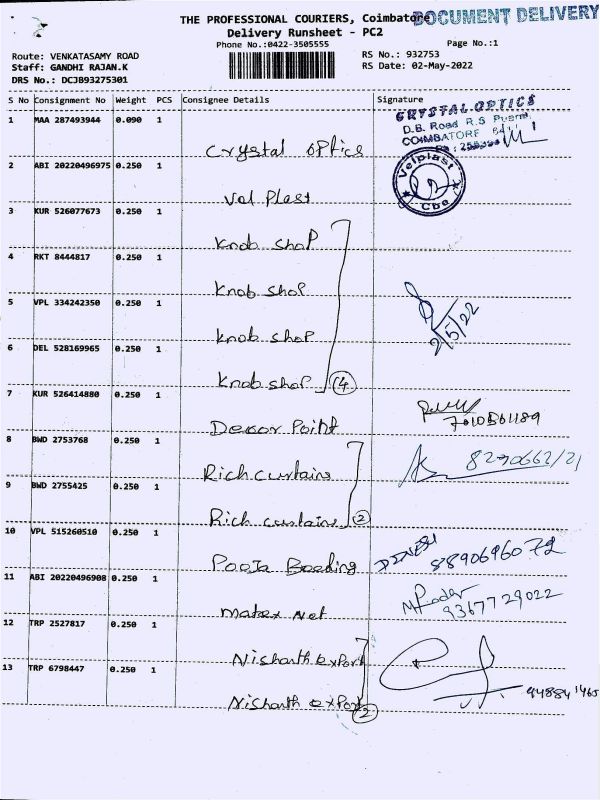 THE PROFESSIONAL COURIERS, Coimbatore
DOCUMENT DELIVERY
Delivery Runsheet - PC2
Phone No.:0422-3505555
Page No.:1
Route: VENKATASAMY ROAD
RS No.: 932753
Staff: GANDHI RAJAN.K
RS Date: 02-May-2022
DRS No.: DCJB93275301
S No Consignment No Weight PCS Consignee Details Signature
1 MAA 287493944 0.090 1
Crystal optics
CRYSTAL OPTICS
D.B. Road R.S Puram,
COIMBATORE
2 ABI 20220496975 0.250 1
Val Plast
Velplast
Cbe
3 KUR 526077673 0.250 1
Knob shop
4 RKT 8444817 0.250 1
Knob shop
5 VPL 334242350 0.250 1
Knob shop
2/5/22
6 DEL 528169965 0.250 1
Knob shop 4
7 KUR 526414880 0.250 1
Decor Point
8 BWD 2753768 0.250 1
Rich curtains
8270662/21
9 BWD 2755425 0.250 1
Rich curtains 2
10 VPL 515260510 0.250 1
Pooja Beeding
8890696072
11 ABI 20220496908 0.250 1
Matex Net
9367729022
12 TRP 2527817 0.250 1
Nishanth Export
13 TRP 6798447 0.250 1
Nishanth export 2